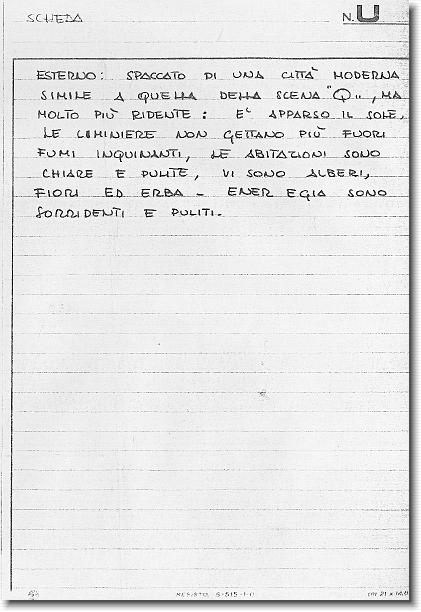 SCHEDA N. U
ESTERNO: SPACCATO DI UNA CITTÀ MODERNA
SIMILE A QUELLA DELLA SCENA "Q", MA
MOLTO PIÙ RIDENTE: E' APPARSO IL SOLE,
LE CIMINIERE NON GETTANO PIÙ FUORI
FUMI INQUINANTI, LE ABITAZIONI SONO
CHIARE E PULITE, VI SONO ALBERI,
FIORI ED ERBA - ENER E GIA SONO
SORRIDENTI E PULITI.